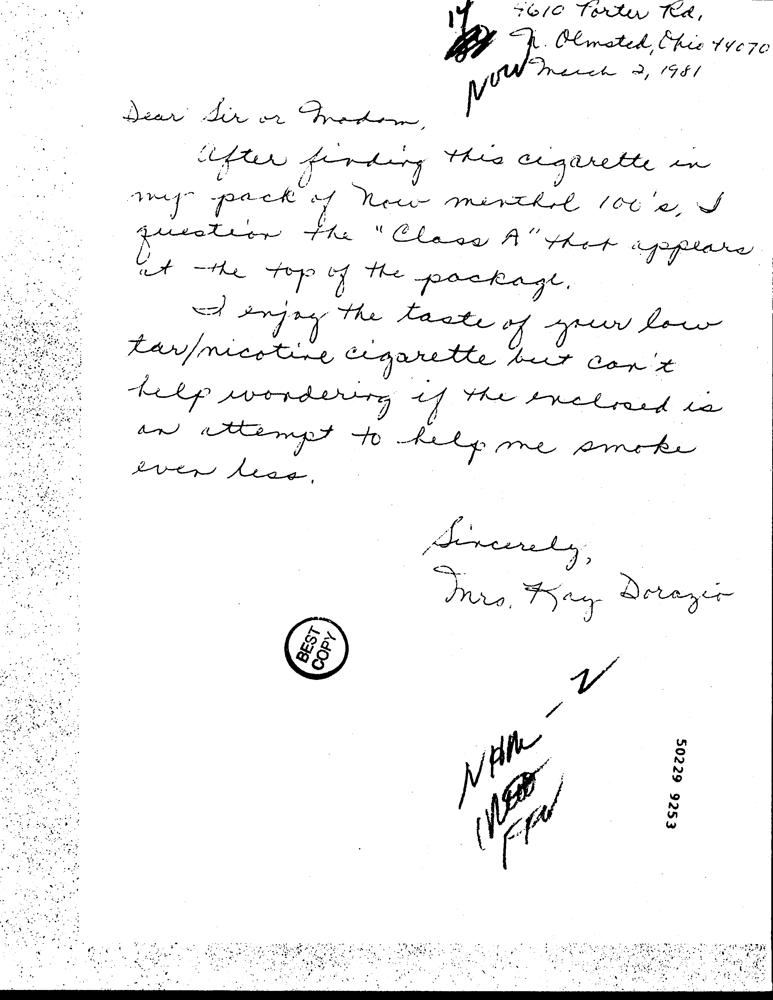 14 4610 Porter Rd,
N. Olmsted, Ohio 44070
Now March 2, 1981
Dear Sir or Madam,
After finding this cigarette in
my pack of Now menthol 100's, I
question the "Class A" that appears
at the top of the package.
I enjoy the taste of your low
tar/nicotine cigarette but can't
help wondering if the enclosed is
an attempt to help me smoke
even less.
Sincerely,
Mrs. Kay Dorazio
BEST
COPY
50229 9253